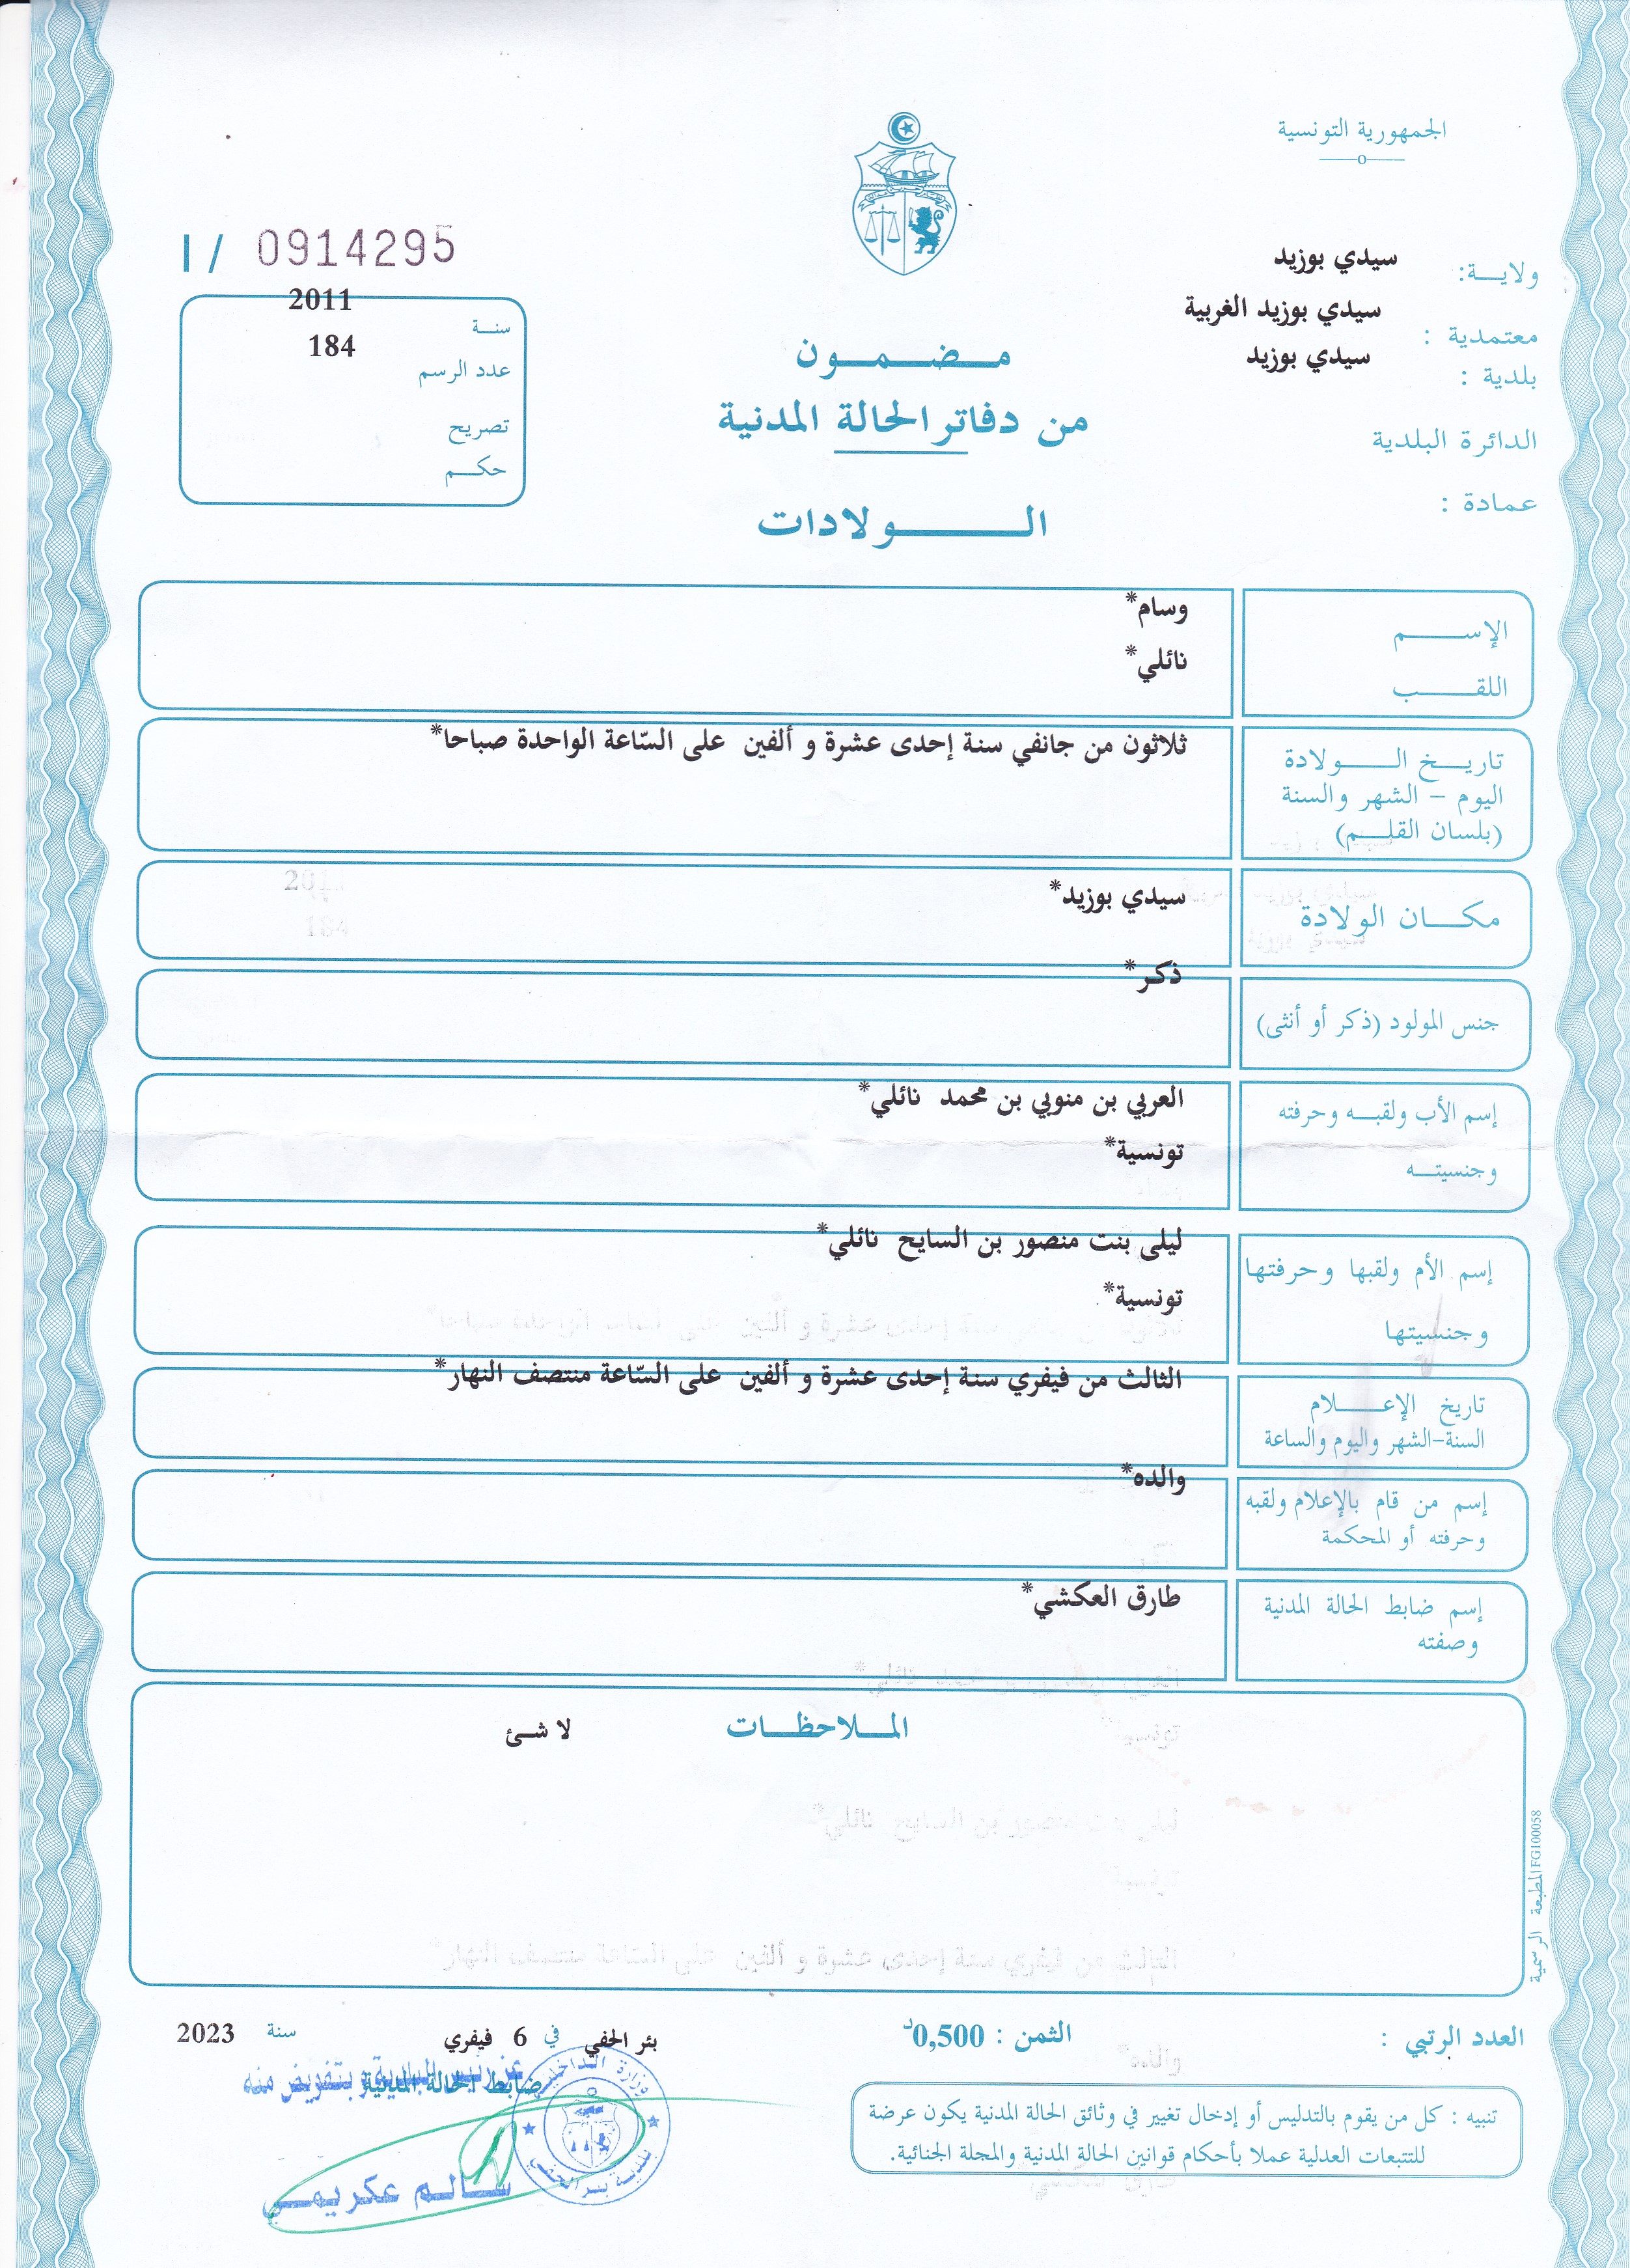 الجمهورية التونسية
ولايـــة: سيدي بوزيد
معتمدية : سيدي بوزيد الغربية
بلدية : سيدي بوزيد
الدائرة البلدية
عمادة :
I / 0914295
سنــة 2011
عدد الرسم 184
تصريح
حكــم
مــضــمــون
من دفاتر الحالة المدنية
الــــولادات
الإســــم وسام*
اللقــــب نائلي*
تاريــخ الــــولادة ثلاثون من جانفي سنة إحدى عشرة و ألفين على السّاعة الواحدة صباحا*
اليوم – الشهر والسنة
(بلسان القلــم)
مكــان الولادة سيدي بوزيد*
جنس المولود (ذكر أو أنثى) ذكر*
إسم الأب ولقبــه وحرفته العربي بن منوبي بن محمد نائلي*
وجنسيتــه تونسية*
إسم الأم ولقبها وحرفتها ليلى بنت منصور بن السايح نائلي*
وجنسيتها تونسية*
تاريخ الإعــــلام الثالث من فيفري سنة إحدى عشرة و ألفين على السّاعة منتصف النهار*
السنة-الشهر واليوم والساعة
إسم من قام بالإعلام ولقبه والده*
وحرفته أو المحكمة
إسم ضابط الحالة المدنية طارق العكشي*
وصفته
المــلاحظــات لا شئ
المطبعة الرسمية FG100058
العدد الرتبي :
الثمن : 0,500د
بئر الحفي في 6 فيفري سنة 2023
ضابط الحالة المدنية
عن رئيس البلدية و بتفويض منه
وزارة الداخلية
بلدية بئر الحفي
ســالم عكريمــي
تنبيه : كل من يقوم بالتدليس أو إدخال تغيير في وثائق الحالة المدنية يكون عرضة
للتتبعات العدلية عملا بأحكام قوانين الحالة المدنية والمجلة الجنائية.